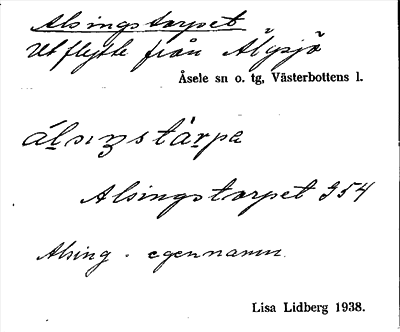 Alsingstorpet
Utflytte från Älgsjö
Åsele sn o. tg, Västerbottens l.
álsıŋstàrpa
Alsingstorpet 954
Alsing - egennamn.
Lisa Lidberg 1938.